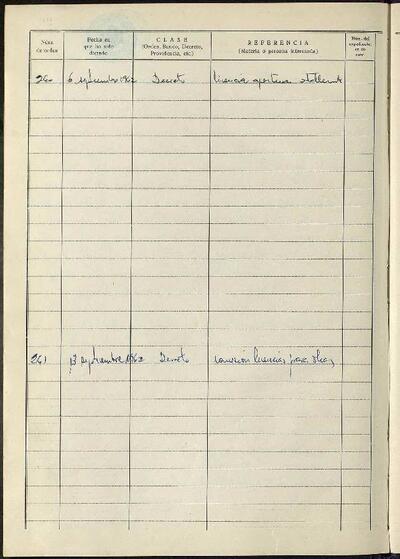 Núm. de orden
Fecha en que ha sido dictado
CLASE
(Orden, Bando, Decreto, Providencia, etc.)
REFERENCIA
(Materia o persona interesada)
Núm. del expediente en su caso
260 6 septiembre 1962 Decreto licencia apertura
261 13 septiembre 1962 Decreto concesión licencias para obras